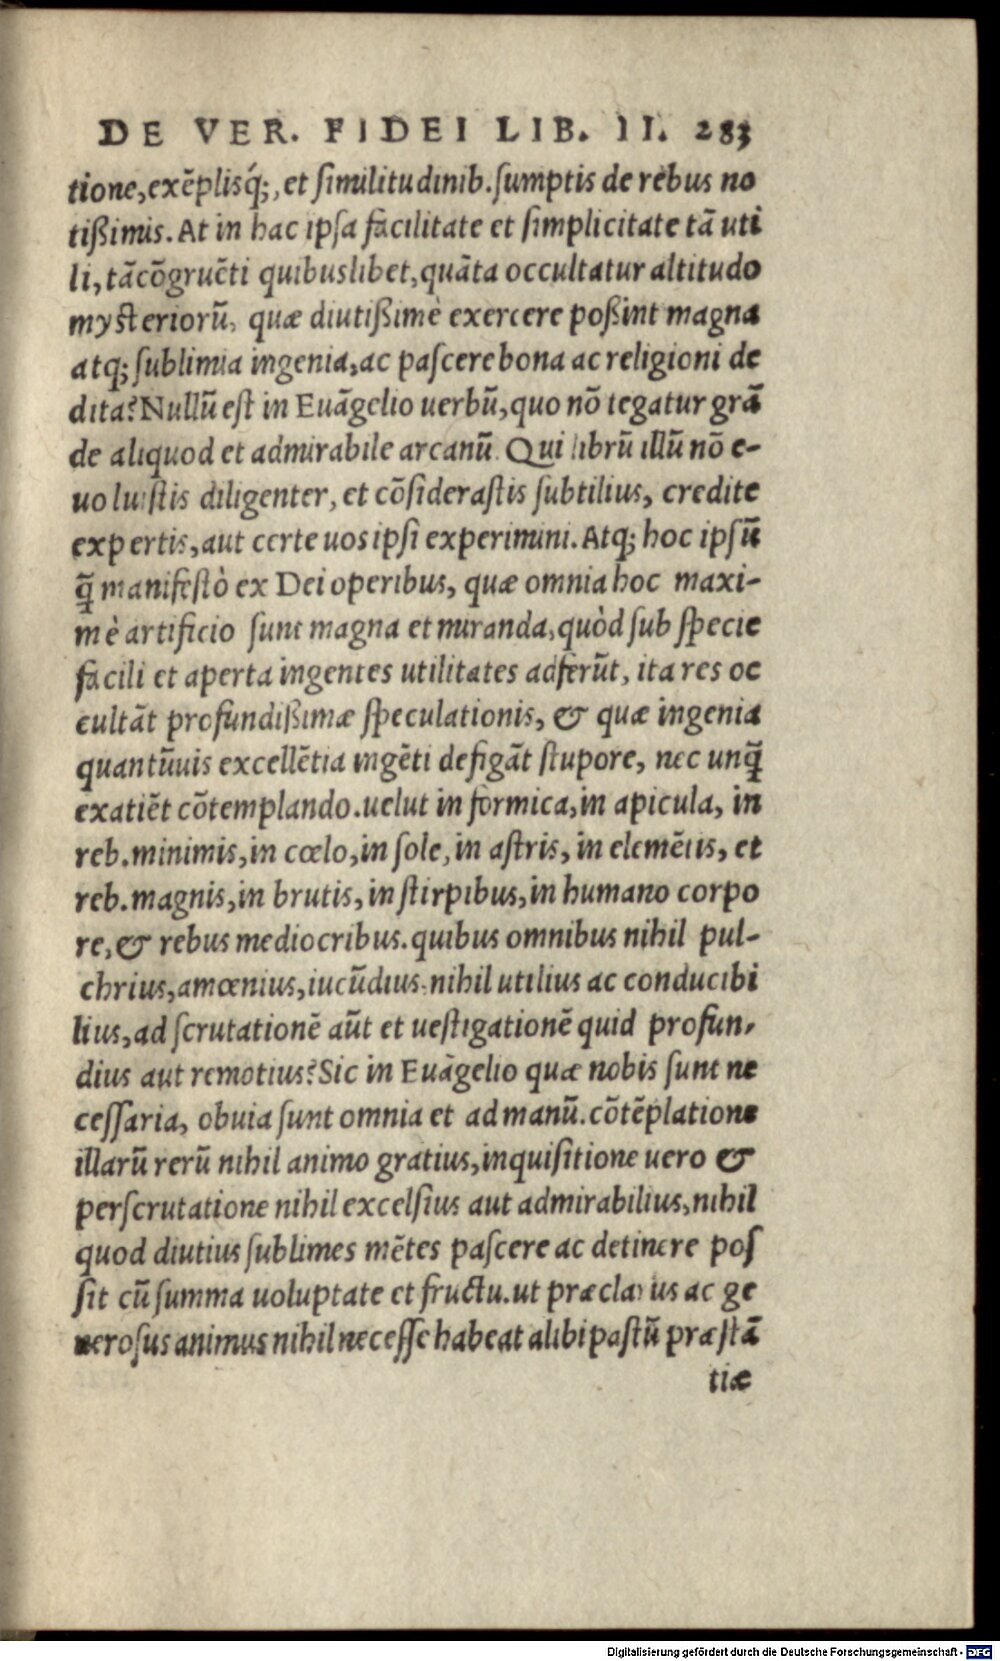 DE VER. FIDEI LIB. II. 283
tione, exẽplisq́;, et similitudinib. sumptis de rebus no
tißimis. At in hac ipsa facilitate et simplicitate tã uti
li, tã cõgruẽti quibuslibet, quãta occultatur altitudo
mysteriorũ, quæ diutißimè exercere poßint magna
atq; sublimia ingenia, ac pascere bona ac religioni de
dita? Nullũ est in Euãgelio uerbũ, quo nõ tegatur grã
de aliquod et admirabile arcanũ. Qui librũ illũ nõ e-
uoluistis diligenter, et cõsiderastis subtilius, credite
expertis, aut certe uos ipsi experimini. Atq; hoc ipsũ
q̃ manifestò ex Dei operibus, quæ omnia hoc maxi-
mè artificio sunt magna et miranda, quòd sub specie
facili et aperta ingentes utilitates adferũt, ita res oc
cultãt profundißimæ speculationis, & quæ ingenia
quantũuis excellẽtia ingẽti defigãt stupore, nec unq̃
exatiẽt cõtemplando. uelut in formica, in apicula, in
reb. minimis, in cœlo, in sole, in astris, in elemẽtis, et
reb. magnis, in brutis, in stirpibus, in humano corpo
re, & rebus mediocribus. quibus omnibus nihil pul-
chrius, amœnius, iucũdius: nihil utilius ac conducibi
lius, ad scrutationẽ aũt et uestigationẽ quid profun-
dius aut remotius? Sic in Euãgelio quæ nobis sunt ne
cessaria, obuia sunt omnia et ad manũ. cõtẽplatione
illarũ rerũ nihil animo gratius, inquisitione uero &
perscrutatione nihil excelsius aut admirabilius, nihil
quod diutius sublimes mẽtes pascere ac detinere pos
sit cũ summa uoluptate et fructu. ut præclarius ac ge
nerosus animus nihil necesse habeat alibi pastũ præstã
tiæ
Digitalisierung gefördert durch die Deutsche Forschungsgemeinschaft - DFG